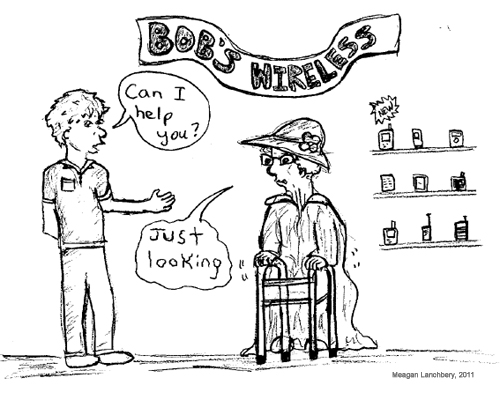 BOB'S WIRELESS
Can I
help
you?
NEW
Just
looking
Meagan Lanchbery, 2011